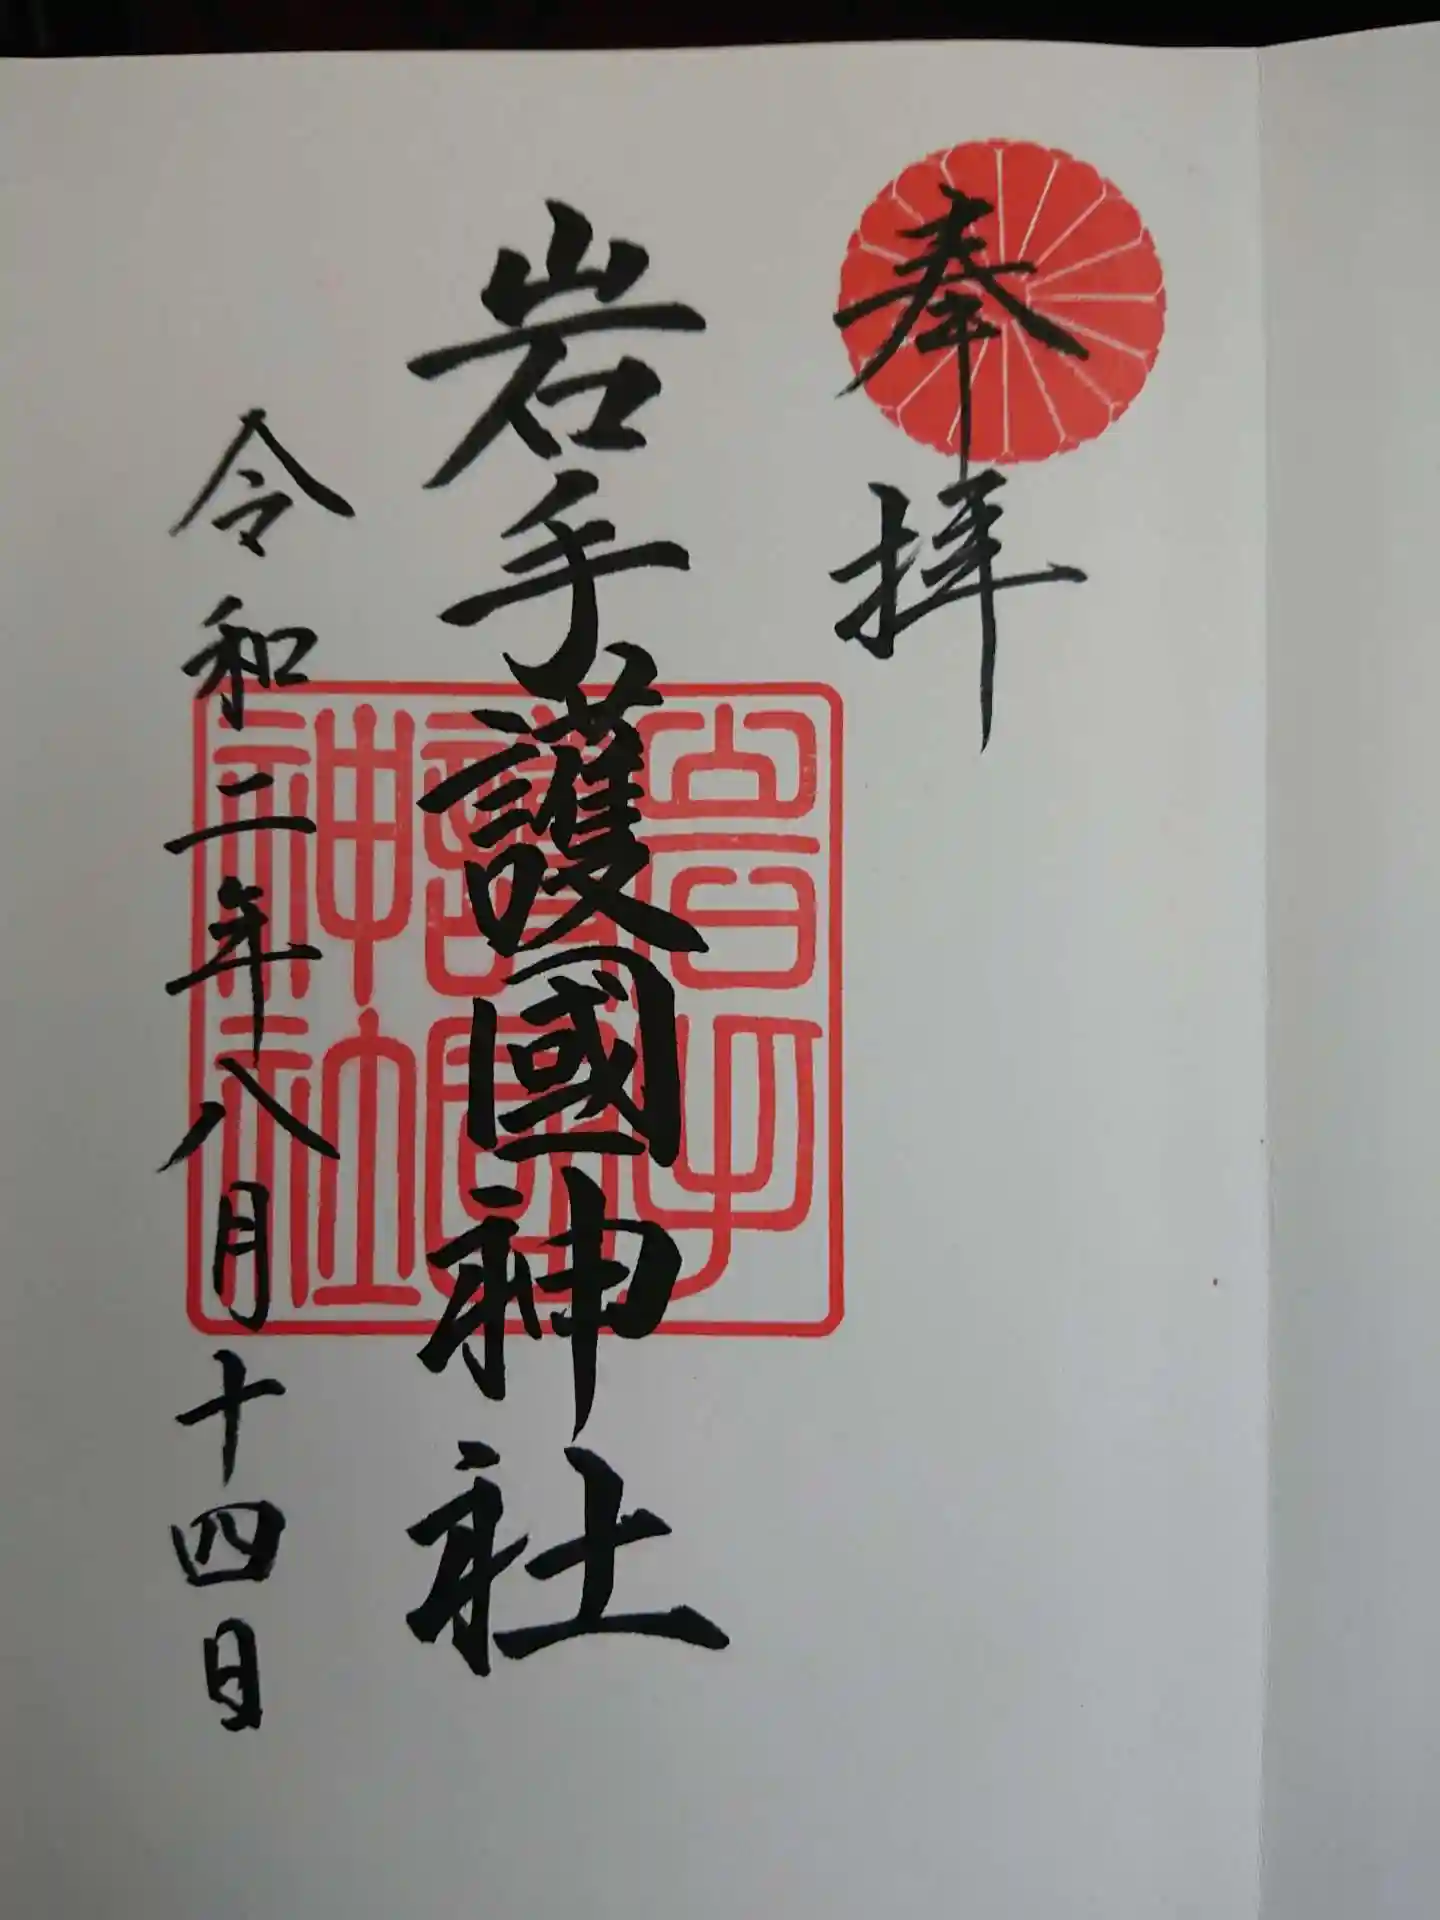 奉拝
岩手護國神社
令和二年八月十四日
岩手
護國
神社